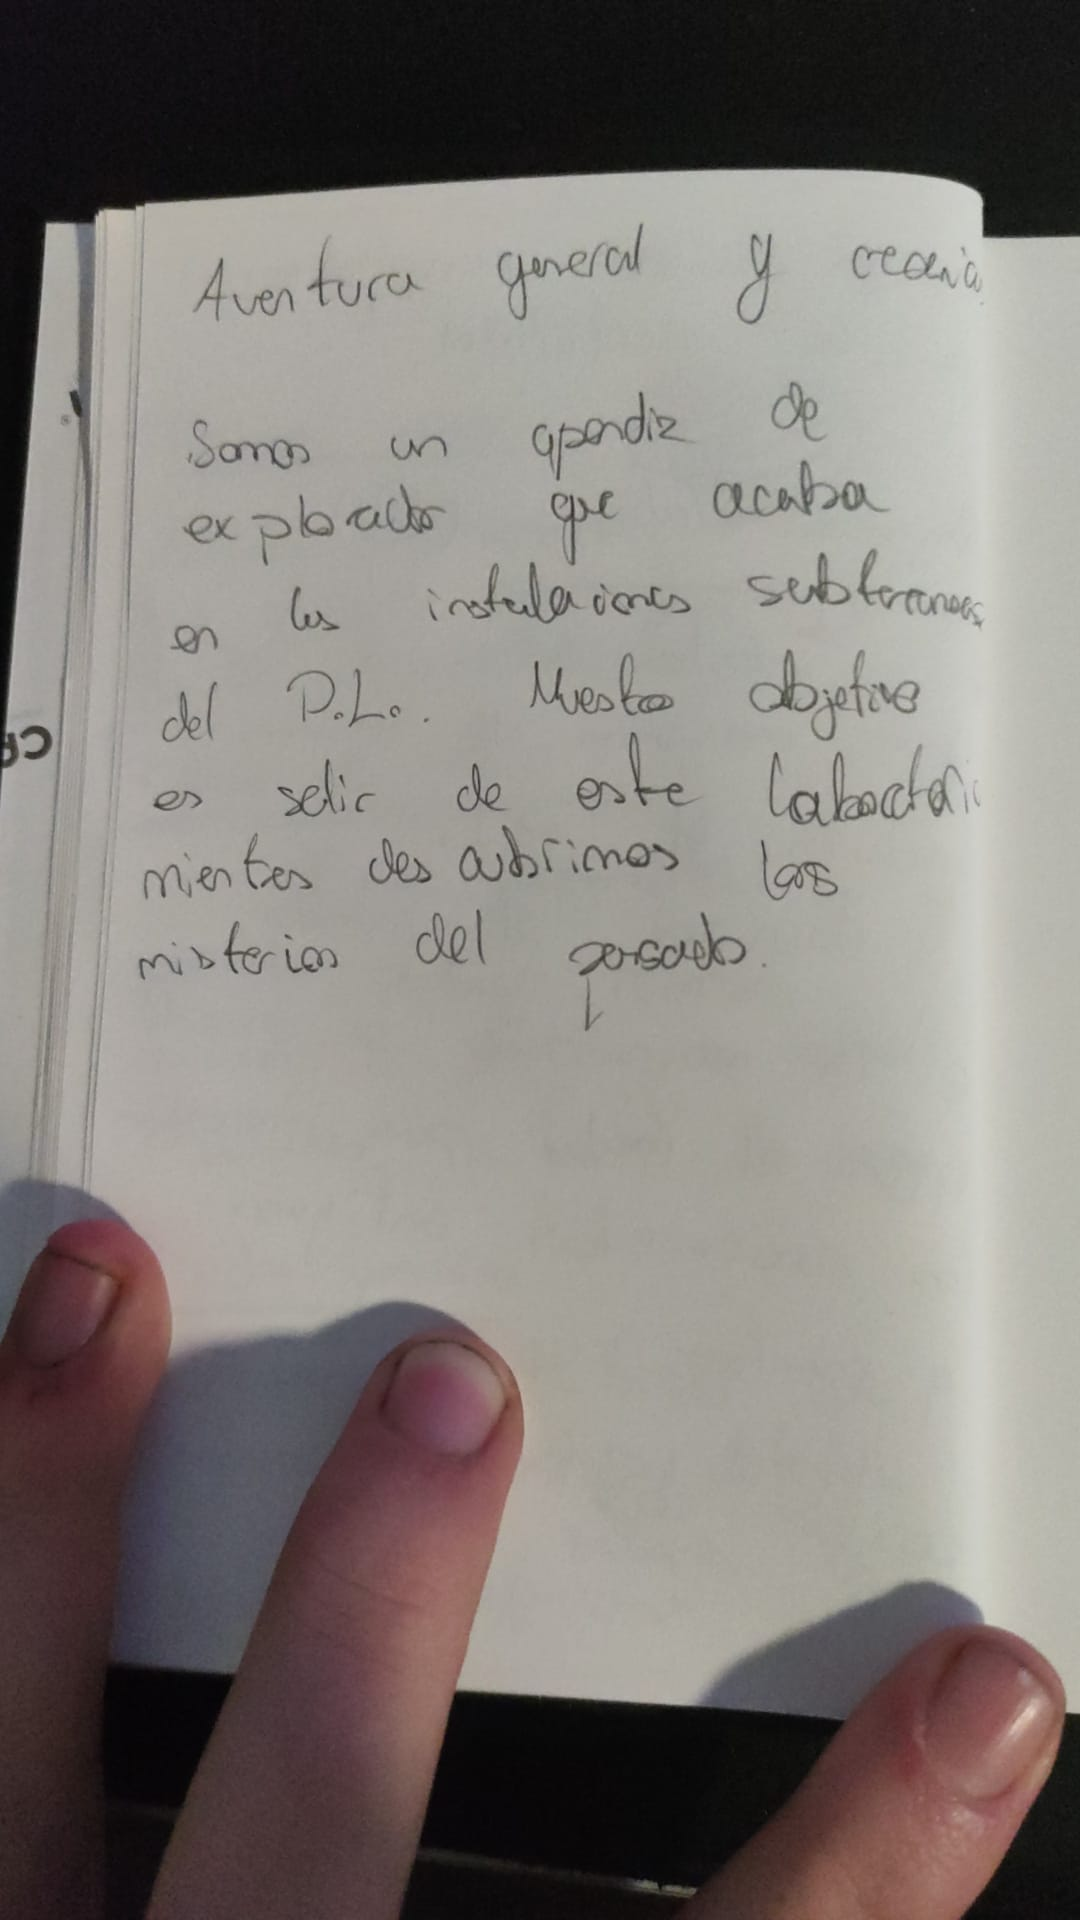 Aventura general y
Somos un aprendiz de
explorador que acaba
en las instalaciones subterraneas
del P.L.. Nuestro objetivo
es salir de este laboratorio
mientras descubrimos los
misterios del pasado.